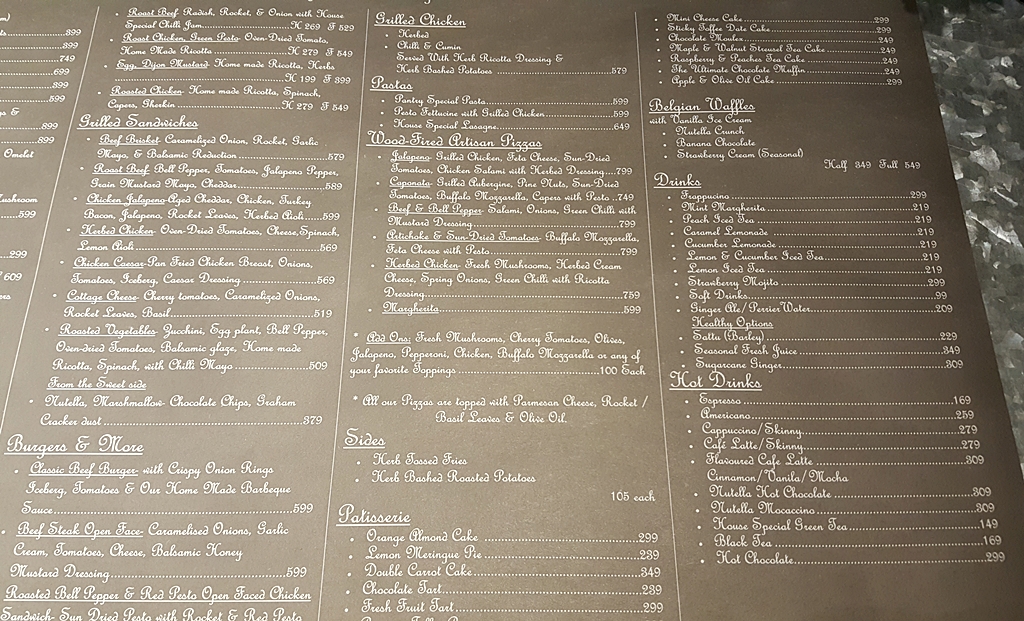 899
899
749
699
899
599
899
899
Omelet
599
299
609
Roast Beef- Radish, Rocket, & Onion with House
Special Chilli Jam H 269 F 529
Roast Chicken, Green Pesto- Oven-Dried Tomato,
Home Made Ricotta H 279 F 549
Egg, Dijon Mustard- Home made Ricotta, Herbs
H 199 F 399
Roasted Chicken- Home made Ricotta, Spinach,
Capers, Gherkin H 279 F 549
Grilled Sandwiches
Beef Brisket- Caramelized Onion, Rocket, Garlic
Mayo, & Balsamic Reduction 579
Roast Beef- Bell Pepper, Tomatoes, Jalapeno Pepper,
Grain Mustard Mayo, Cheddar 589
Chicken Jalapeno-Aged Cheddar, Chicken, Turkey
Bacon, Jalapeno, Rocket Leaves, Herbed Aioli 599
Herbed Chicken- Oven-Dried Tomatoes, Cheese,Spinach,
Lemon Aioli 569
Chicken Caesar-Pan Fried Chicken Breast, Onions,
Tomatoes, Iceberg, Caesar Dressing 569
Cottage Cheese- Cherry tomatoes, Caramelized Onions,
Rocket Leaves, Basil 519
Roasted Vegetables- Zucchini, Egg plant, Bell Pepper,
Oven-dried Tomatoes, Balsamic glaze, Home made
Ricotta, Spinach, with Chilli Mayo 509
From the Sweet side
Nutella, Marshmallow- Chocolate Chips, Graham
Cracker dust 379
Burgers & More
Classic Beef Burger- with Crispy Onion Rings
Iceberg, Tomatoes & Our Home Made Barbeque
Sauce 599
Beef Steak Open Face- Caramelised Onions, Garlic
Cream, Tomatoes, Cheese, Balsamic Honey
Mustard Dressing 599
Roasted Bell Pepper & Red Pesto Open Faced Chicken
Sandwich- Sun Dried Pesto with Rocket & Red Pesto
Grilled Chicken
Herbed
Chilli & Cumin
Served With Herb Ricotta Dressing &
Herb Bashed Potatoes 579
Pastas
Pantry Special Pasta 599
Pesto Fettucine with Grilled Chicken 599
House Special Lasagne 649
Wood-Fired Artisan Pizzas
Jalapeno- Grilled Chicken, Feta Cheese, Sun-Dried
Tomatoes, Chicken Salami with Herbed Dressing 799
Caponata- Grilled Aubergine, Pine Nuts, Sun-Dried
Tomatoes, Buffalo Mozzarella, Capers with Pesto 749
Beef & Bell Pepper- Salami, Onions, Green Chilli with
Mustard Dressing 799
Artichoke & Sun-Dried Tomatoes- Buffalo Mozzarella,
Feta Cheese with Pesto 799
Herbed Chicken- Fresh Mushrooms, Herbed Cream
Cheese, Spring Onions, Green Chilli with Ricotta
Dressing 759
Margherita 599
* Add Ons: Fresh Mushrooms, Cherry Tomatoes, Olives,
Jalapeno, Pepperoni, Chicken, Buffalo Mozzarella or any of
your favorite Toppings 100 Each
* All our Pizzas are topped with Parmesan Cheese, Rocket /
Basil Leaves & Olive Oil.
Sides
Herb Tossed Fries
Herb Bashed Roasted Potatoes
105 each
Patisserie
Orange Almond Cake 299
Lemon Meringue Pie 239
Double Carrot Cake 349
Chocolate Tart 239
Fresh Fruit Tart 299
Mini Cheese Cake 299
Sticky Toffee Date Cake 299
Chocolate Moules 249
Maple & Walnut Streusel Tea Cake 249
Raspberry & Peaches Tea Cake 249
The Ultimate Chocolate Muffin 249
Apple & Olive Oil Cake 249
Belgian Waffles
with Vanilla Ice Cream
Nutella Crunch
Banana Chocolate
Strawberry Cream (Seasonal)
Half 349 Full 549
Drinks
Frappuccino 299
Mint Margherita 219
Peach Iced Tea 219
Caramel Lemonade 219
Cucumber Lemonade 219
Lemon & Cucumber Iced Tea 219
Lemon Iced Tea 219
Strawberry Mojito 299
Soft Drinks 99
Ginger Ale/ Perrier Water 209
Healthy Options
Sattu (Barley) 229
Seasonal Fresh Juice 349
Sugarcane Ginger 309
Hot Drinks
Espresso 169
Americano 259
Cappuccino/ Skinny 279
Café Latte/ Skinny 279
Flavoured Cafe Latte 309
Cinnamon/Vanila/ Mocha
Nutella Hot Chocolate 309
Nutella Mocaccino 309
House Special Green Tea 149
Black Tea 169
Hot Chocolate 299